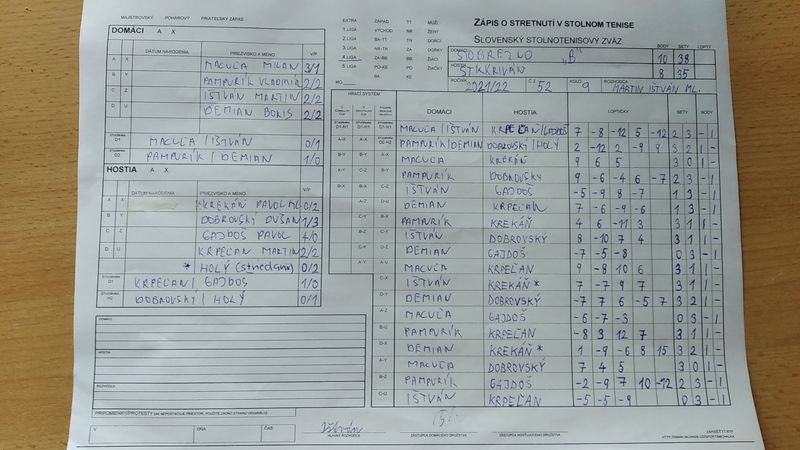 MAJSTROVSKÝ POHÁROVÝ PRIATEĽSKÝ ZÁPAS
EXTRA ZÁPAD TT MUŽI
1. LIGA VÝCHOD NR ŽENY
2. LIGA BA-TT TN DORCI
3. LIGA NR-TN ZA DORKY
4. LIGA ZA-BB BB ŽIACI
5. LIGA PO-KE PO ŽIAČKY
BA KE
ZÁPIS O STRETNUTÍ V STOLNOM TENISE
SLOVENSKÝ STOLNOTENISOVÝ ZVÄZ
BODY SETY LOPTY
DOMÁCI „B" 10 38
HOSTIA ŠTKKRIVÁŇ 8 35
ROČNÍK 2021/22 Č.Z. 52 KOLO 9 ROZHODCA MARTIN IŠTVÁN ML.
DOMÁCI A X
DÁTUM NARODENIA PRIEZVISKO A MENO V/P
A X MACUĽA MILAN 3/1
B Y PAMPURÍK VLADIMÍR 2/2
C Z IŠTVÁN MARTIN 2/2
D U DEMIAN BORIS 2/2
ŠTVORHRA D1 MACUĽA / IŠTVÁN 0/1
ŠTVORHRA D2 PAMPURÍK / DEMIAN 1/0
HOSTIA A X
DÁTUM NARODENIA PRIEZVISKO A MENO V/P
A X KREKÁŇ PAVOL ML. 0/2
B Y DOBROVSKÝ DUŠAN 1/3
C Z GAJDOŠ PAVOL 4/0
D U KRPEĽAN MARTIN 2/2
* HOLÝ 0/2
ŠTVORHRA H1 KRPEĽAN / GAJDOŠ 1/0
ŠTVORHRA H2 DOBROVSKÝ / HOLÝ 0/1
HRACÍ SYSTÉM
DOMÁCI HOSTIA LOPTIČKY SETY BODY
D1-H1 D1-H1 D1-H1 MACUĽA / IŠTVÁN KRPEĽAN/GAJDOŠ 7 -8 -12 5 -12 2 3 - 1
A-X A-X D2-H2 PAMPURÍK/DEMIAN DOBROVSKÝ / HOLÝ 2 -12 2 -9 9 3 2 1 -
B-Y B-Y A-X MACUĽA KREKÁŇ 9 6 5 3 0 1 -
A-Y C-Z B-Y PAMPURÍK DOBROVSKÝ 9 -6 -4 6 -7 2 3 - 1
B-X B-X C-Z IŠTVÁN GAJDOŠ -5 -9 8 -7 1 3 - 1
A-Z D-U DEMIAN KRPEĽAN 7 -6 -9 -6 1 3 - 1
C-Y B-X PAMPURÍK KREKÁŇ 4 6 -11 3 3 1 1 -
B-Z C-Y IŠTVÁN DOBROVSKÝ 8 -10 7 4 3 1 1 -
C-X D-Z DEMIAN GAJDOŠ -7 -5 -8 0 3 - 1
A-Y A-U MACUĽA KRPEĽAN 9 -8 10 6 3 1 1 -
C-X IŠTVÁN KREKÁŇ * 7 -7 9 7 3 1 1 -
D-Y DEMIAN DOBROVSKÝ -7 7 6 -5 7 3 2 1 -
A-Z MACUĽA GAJDOŠ -6 -7 -3 0 3 - 1
B-U PAMPURÍK KRPEĽAN -8 3 12 7 3 1 1 -
D-X DEMIAN KREKÁŇ * 1 -9 -6 8 15 3 2 1 -
A-Y MACUĽA DOBROVSKÝ 7 4 5 3 0 1 -
B-Z PAMPURÍK GAJDOŠ -2 -9 7 10 -12 2 3 - 1
C-U IŠTVÁN KRPEĽAN -5 -5 -9 0 3 - 1
DOMÁCI
HOSTIA
ROZHODCA
PRIPOMIENKY/PROTESTY
V DŇA ČAS
HLAVNÝ ROZHODCA
ZÁSTUPCA DOMÁCEHO DRUŽSTVA
ZÁSTUPCA HOSŤUJÚCEHO DRUŽSTVA